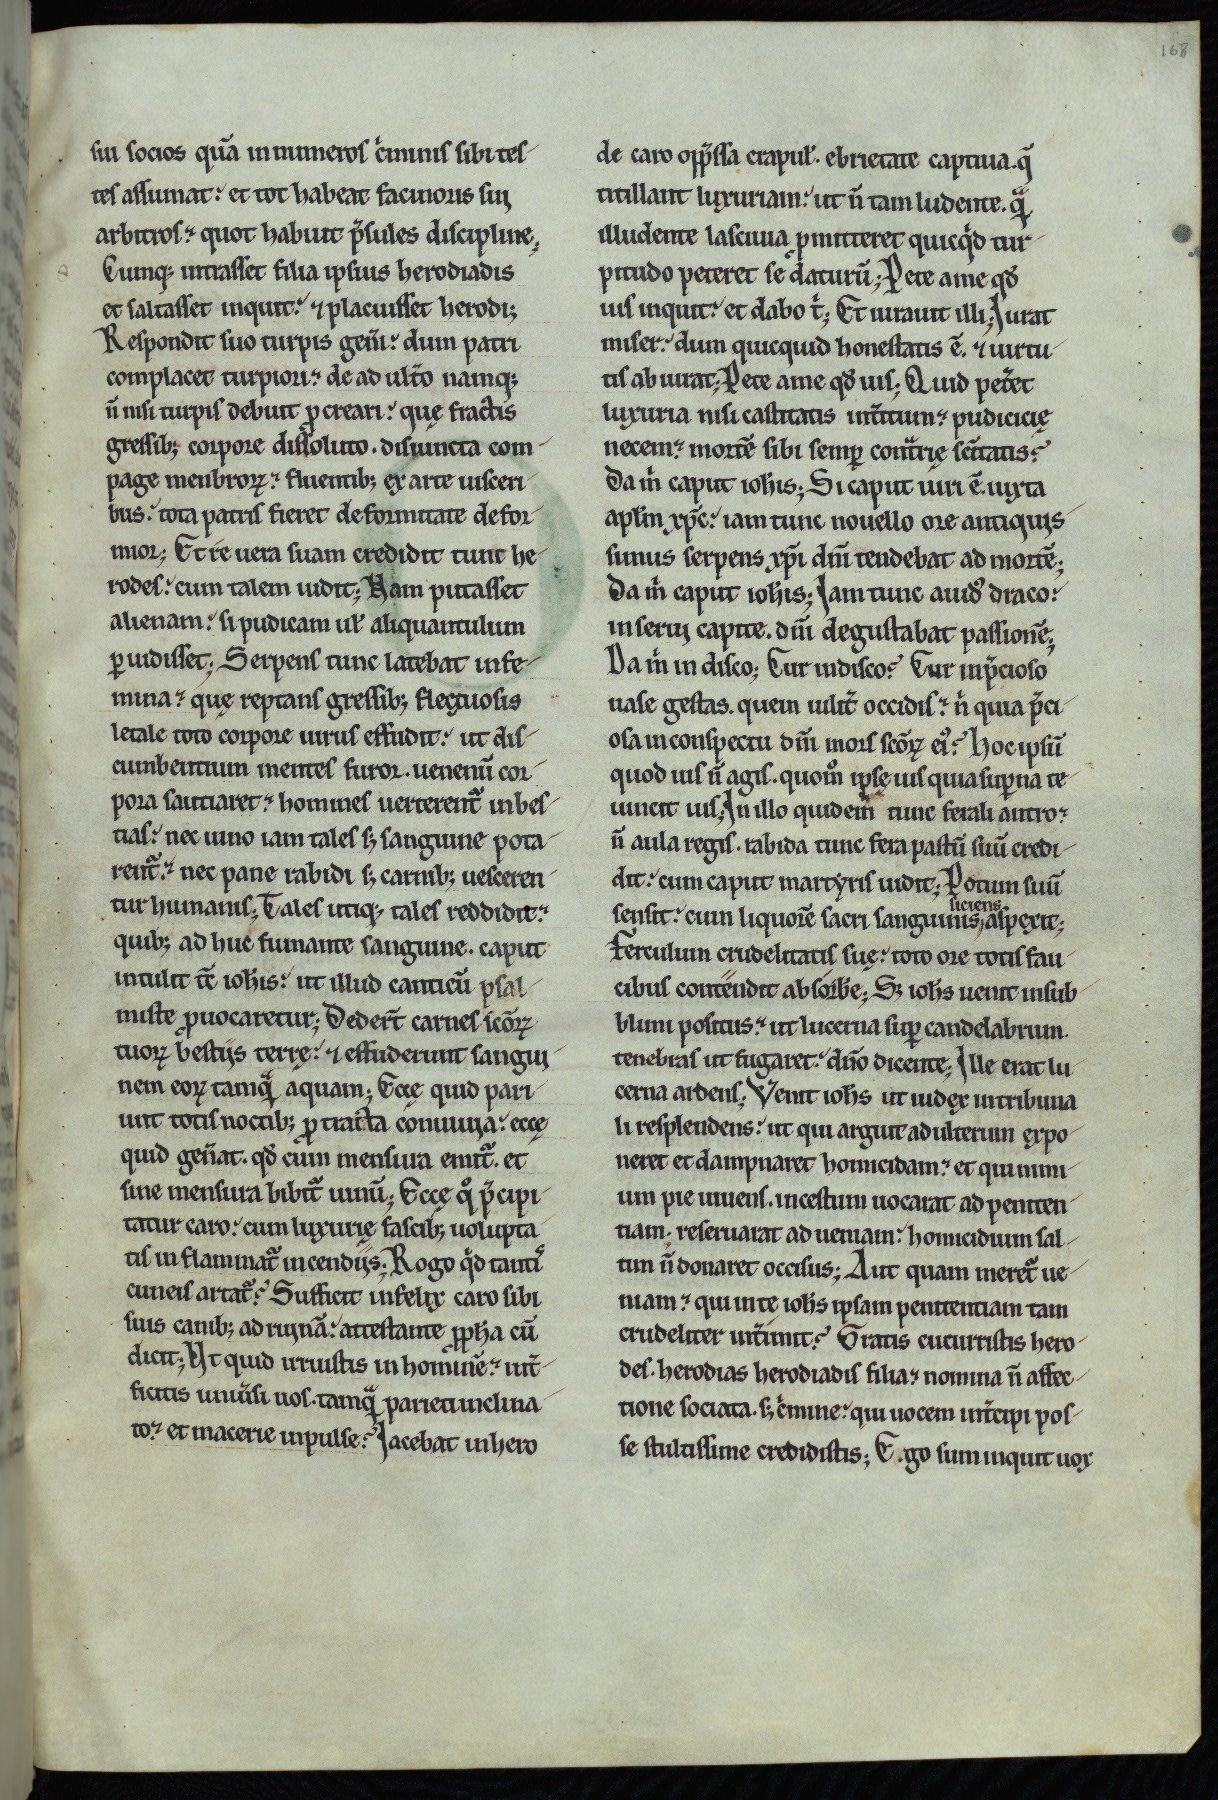 168
sui socios quā innumeros c̾iminis sibi tes-
tes assumat? et tot habeat facinoris sui
arbitros? quot habuit p̄sules discipline;
Cumq; intrasset filia ipsius herodiadis
et saltasset inquit? ⁊ placuisset herodi;
Respondit suo turpis gen̄i? dum patri
complacet turpiori? de adult̾o namq;
n̄ nisi turpis debuit ꝓcreari? quę fractis
gressib; corpore dissoluto. disiuncta com-
page menbroꝝ? fluentib; ex arte uisceri-
bus? tota patris fieret deformitate defor-
mior; Et re uera suam credidit tunc he-
rodes? cum talem uidit; Nam putasset
alienam? si pudicam ul̾ aliquantulum
ꝑuidisset; Serpens tunc latebat in fe-
mina? quę reptans gressib; flexuosis
letale toto corpore uirus effudit? ut dis-
cumbentium mentes furor. uenenū cor-
pora sauciaret? homines uerterent᷑ in bes-
tias? nec uino iam tales s; sanguine pota-
rent᷑? nec pane rabidi s; carnib; uesceren-
tur humanis; Tales utiq; tales reddidit?
quib; ad huc fumante sanguine. caput
intulit tc̄ ioh̄is? ut illud canticū psal-
miste ꝓuocaretur; Deder̄t carnes sc̄oꝝ
tuoꝝ bestijs terrę? ⁊ effuderunt sangui-
nem eoꝝ tamqͣ̄ aquam; Ecce quid pari-
unt totis noctib; ꝓtracta conuiuia? ecce
quid gen̄at. qđ cum mensura emit᷑. et
sine mensura bibit᷑ uinū; Ecce qͦ p̄cipi-
tatur caro? cum luxurię fascib; uolupta-
tis inflammat᷑ incendijs; Rogo qͥd tantͥ
cuneis artat᷑? Sufficit infelix caro sibi
suis canib; ad ruinā? attestante ꝓph̄a cū
dicit; Ut quid irruistis in hominē? int̾-
ficitis uniūsi uos. tamqͣ̄ parieti inclina-
to? et macerie inpulse? Iacebat in hero-
de caro opp̄ssa crapul̾. ebrietate captiua. q̄
titillant luxuriam? ut n̄ tam ludente. qͣ̄
illudente lasciuia ꝓmitteret quicqͥd tur-
pitudo peteret se daturū; Pete a me qđ
uis inquit? et dabo t̾; Et iurauit illi; Iurat
miser? dum quicquid honestatis ē. ⁊ uirtu-
tis abiurat; Pete a me qđ uis; Quid pet̾et
luxuria nisi castitatis int̾itum? pudicicię
necem? mortē sibi semꝑ cont̾rię sc̄itatis?
Da m̾ caput ioh̄is; Si caput uiri ē. iuxta
apl̄m xp̄c? iam tunc nouello ore antiquis-
simus serpens xp̄i dn̄i tendebat ad mortē;
Da m̾ caput ioh̄is; Iam tunc auidꝰ draco?
in serui capite. dn̄i degustabat passionē;
Da m̾ in disco; Cur in disco? Cur in p̄cioso
uase gestas. quem uilit̾ occidis? n̾ quia p̄ci-
osa in conspectu dn̄i mors sc̄oꝝ eiꝰ? Hoc ipsū
quod uis n̄ agis. quom̊ ipse uis quia suꝑna te
uincit uis; In illo quidem tunc ferali antro?
n̄ aula regis. rabida tunc fera pastū suū credi-
dit? cum caput martyris uidit; Potum suū
siciens
sensit? cum liquorē sacri sanguinis, aspexit;
Ferculum crudelitatis suę? toto ore totis fau-
cibus contendit absorbe; S; ioh̄s uenit in sub-
blimi positus? ut lucerna suꝑ candelabrum.
tenebras ut fugaret? dn̄o dicente; Ille erat lu-
cerna ardens; Venit ioh̄s ut iudex in tribuna-
li resplendens? ut qui arguit adulterium expo-
neret et dampnaret homicidam? et qui nimi-
um pie uiuens. incestum uocarat ad peniten-
tiam. reseruarat ad ueniam? homicidium sal-
tim n̄ donaret occisus; Aut quam meret᷑ ue-
niam? qui in te ioh̄s ipsam penitentiam tam
crudeliter int̾imit? Gratis cucurristis hero-
des. herodias herodiadis filia? nomina n̄ affec-
tione sociata. s; c̾imine? qui uocem int̾cipi pos-
se stultissime credidistis; E.go sum inquit uox